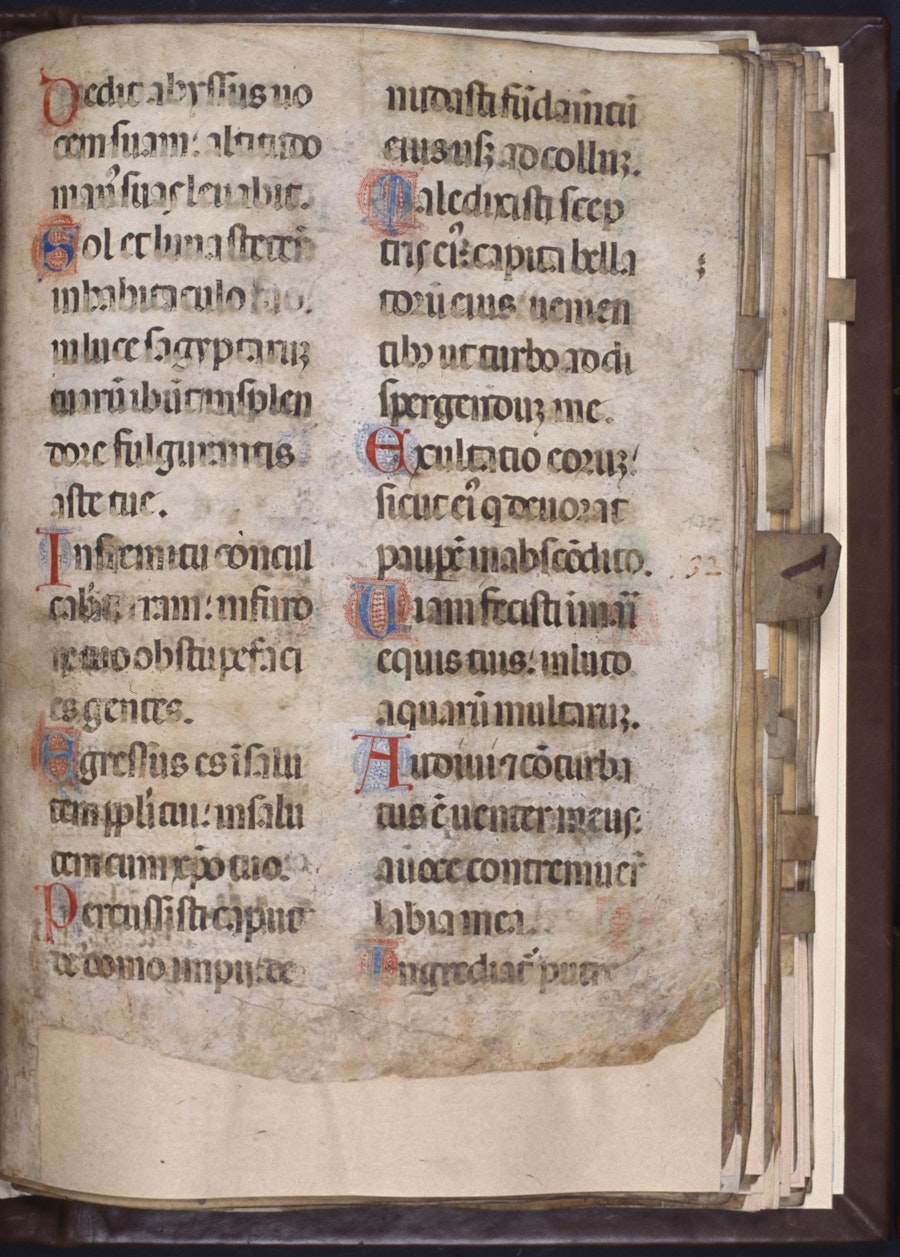 Dedit abyssus uo
cem suam: altitudo
man᷒ suas leuabit.
Sol et luna stete͛t
in habitaculo suo:
in luce sagyptaruꝫ
tuarū ibūt in splen
dore fulgurantis
aste tue.
In fremitu concul
cab̾ t̾ram: in furo
re tuo obstupefaci
es gentes.
Egressus es ī salu
tem ppl̄i tui: in salu
tem cum xp̄o tuo.
Percussisti caput
de domo impij: de
nudasti fūdam̄tū
eius usꝫ ad colluꝫ.
Maledixisti scep
tris ei᷒: capita bella
torū eius: uenien
tibꝫ ut turbo ad di
spergenduꝫ me.
Exultatio eoruꝫ:
sicut ei᷒ q̇ deuorat
paupē in abscōdito.
Uiam fecisti in mari
equis tuis: in luto
aquarū multaruꝫ.
Audiui ⁊ cōturba
tus ē uenter meus:
a uoce contremuer̄
labia mea.
Ingrediat᷒ putre
132